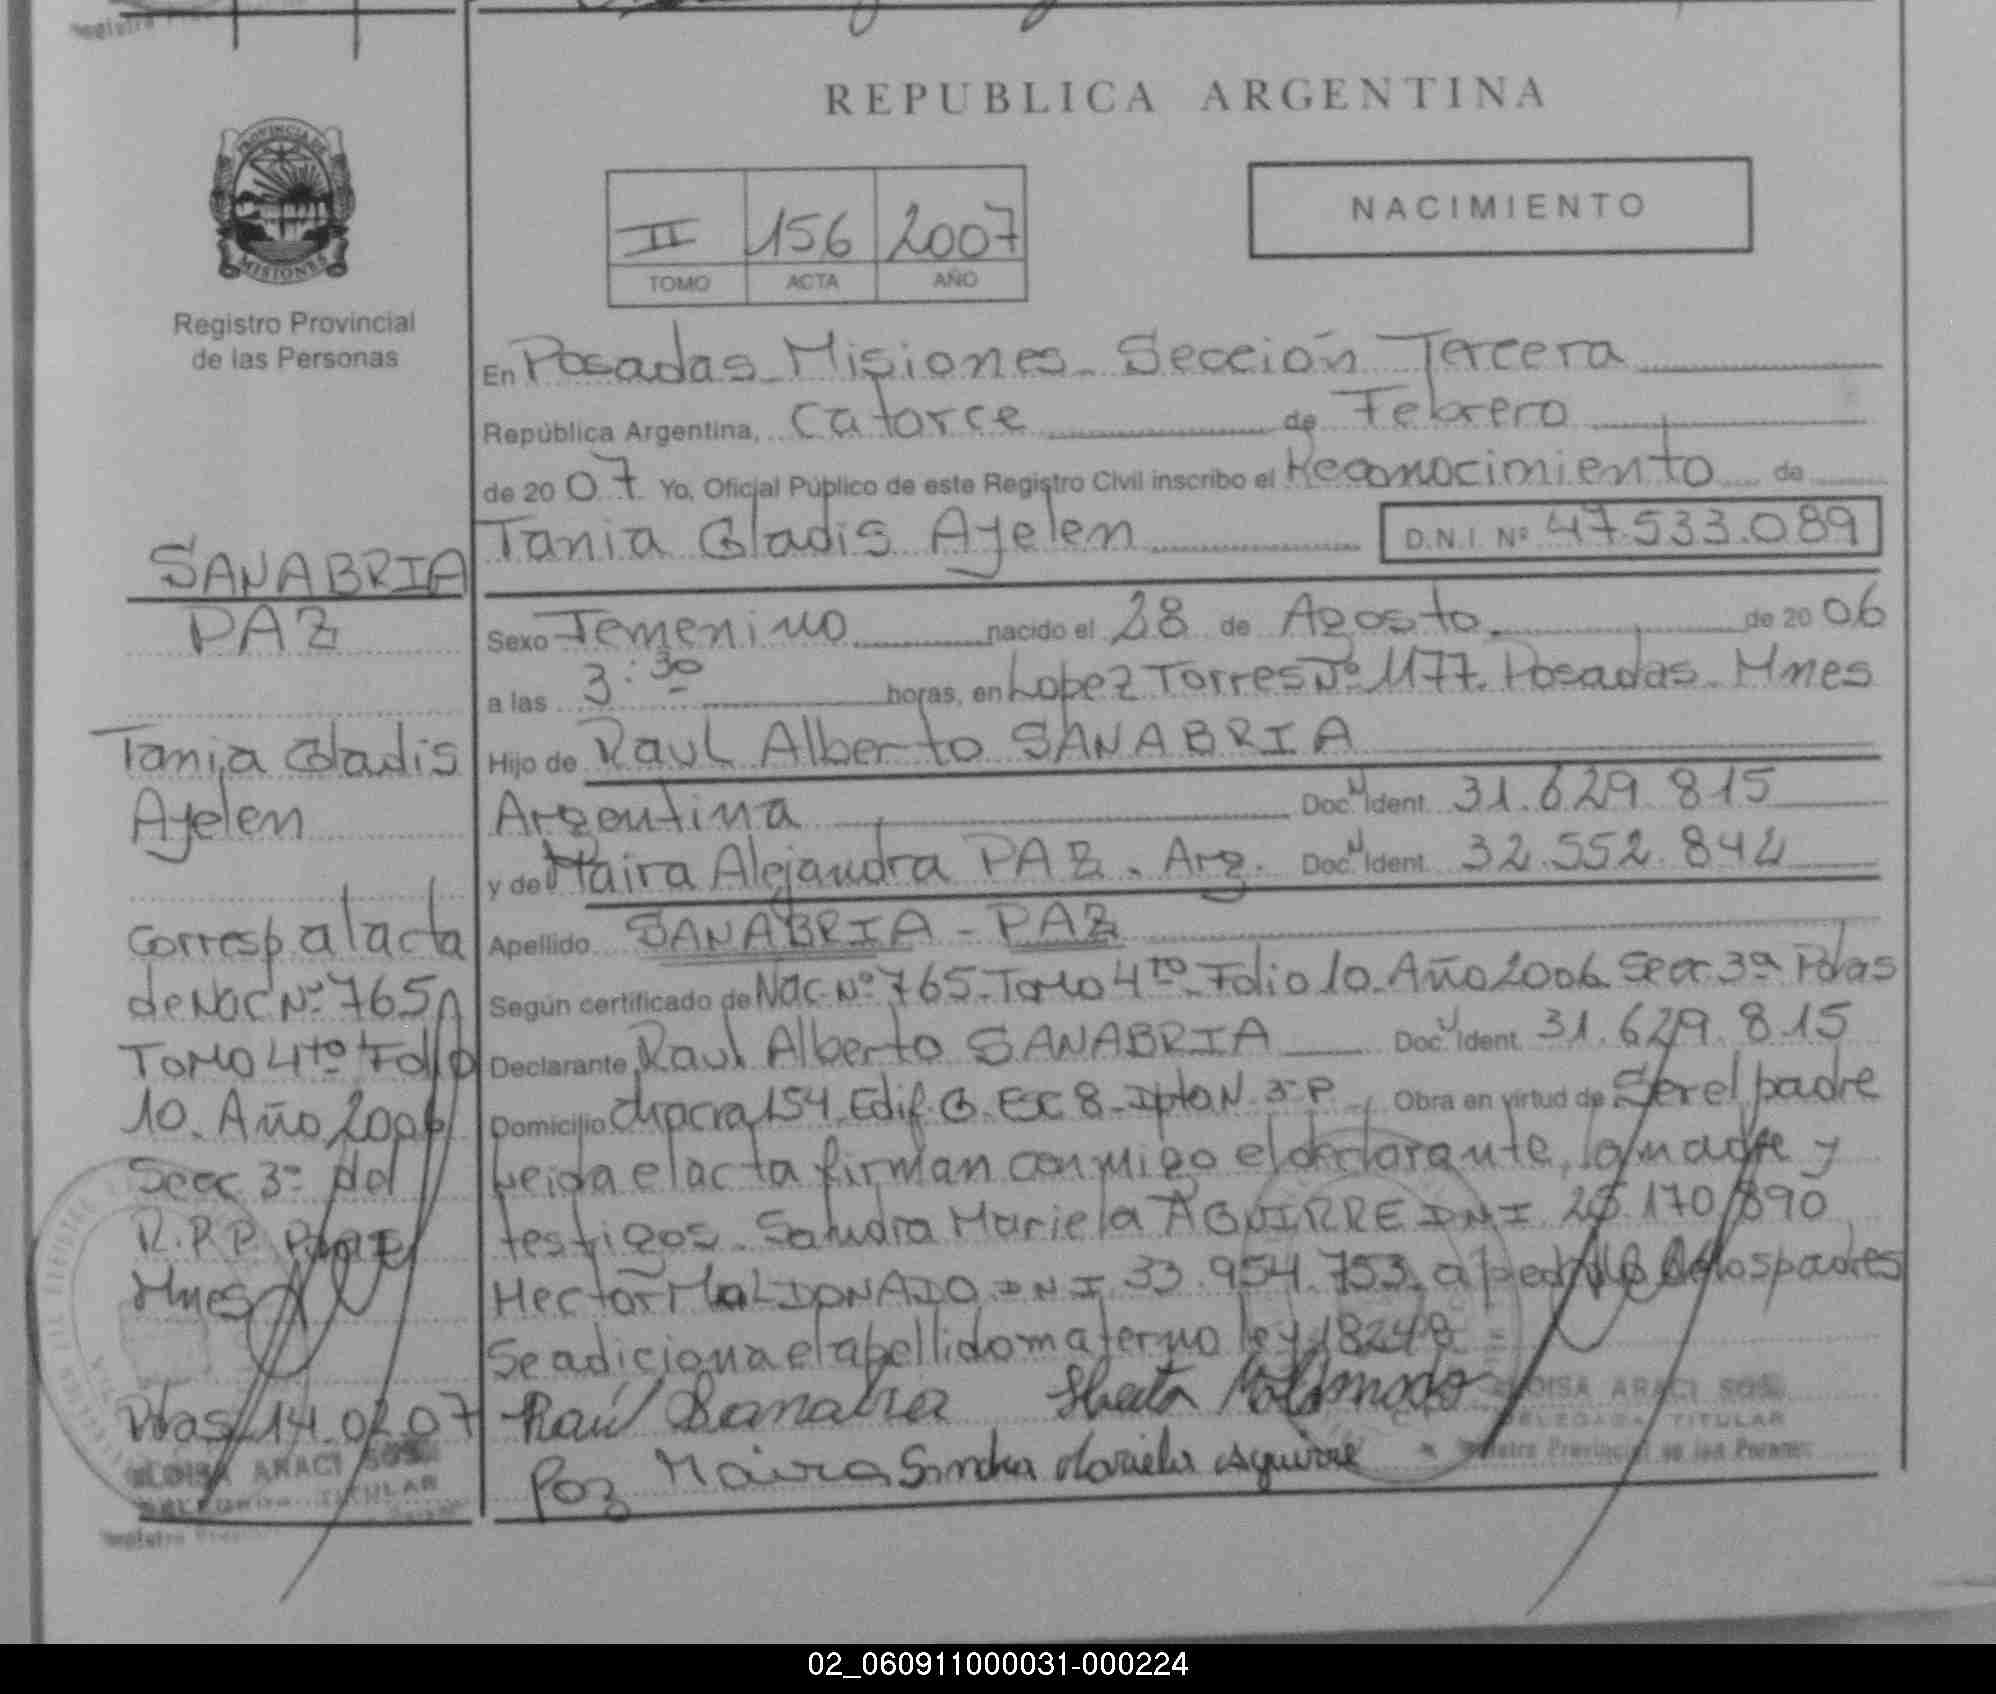 REPUBLICA ARGENTINA
PROVINCIA DE
MISIONES
Registro Provincial
de las Personas
II 156 2007
TOMO ACTA AÑO
NACIMIENTO
En Posadas Misiones Sección Tercera
República Argentina, catorce de Febrero
de 2007 Yo, Oficial Público de este Registro Civil inscribo el Reconocimiento de
Tania Gladis Ayelen D.N.I. Nº 47.533.089
Sexo Femenino nacido el 28 de Agosto de 2006
a las 3:30 horas, en Lopez Torres Nº 1177. Posadas. Mnes
Hijo de Raul Alberto SANABRIA
Argentina Doc. Ident. 31.629.815
y de Maira Alejandra PAZ. Arg. Doc. Ident. 32.552.842
Apellido SANABRIA - PAZ
Según certificado de Nac Nº 765-Tomo 4to-Folio 10. Año 2006 Secc 3ª Pdas
Declarante Raul Alberto SANABRIA Doc. Ident. 31.629.815
Domicilio chacra 154 Edif. G. Esc 8-Dpto N. 3º P Obra en virtud de Ser el padre
Leida el acta firman conmigo el declarante, la madre y
testigos. Sandra Mariela AGUIRRE DNI 170.890
Hector MALDONADO DNI 33.954.753. a pedido de los padres
Se adiciona el apellido materno ley 18248 =
Raúl Sanabria Hector Maldonado
Paz Maira Sandra Mariela Aguirre
ARACI
TITULAR
SANABRIA
PAZ
Tania Gladis
Ayelen
Corresp. al acta
de Nac Nº 765
Tomo 4to Folio
10. Año 2006
Secc 3º del
R.P.P. Pdas
Mnes
Pdas 14.02.07
ARACI
TITULAR
02_060911000031-000224